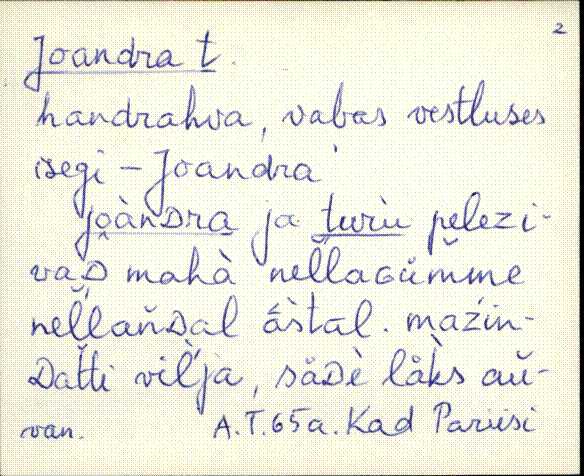 2
Joandra t.
handrahva, vabas vestluses
isegi – Joandra'
joànDra ja turìu pelezi-
vaD mahà nel̆laGŭm̆me
nel̆lan̆Dal ás̀tal. maźin-
Dat̆ti vil̀ja, såDè låk̀s aŭ-
van. A.T. 65a. Kad Pariisi